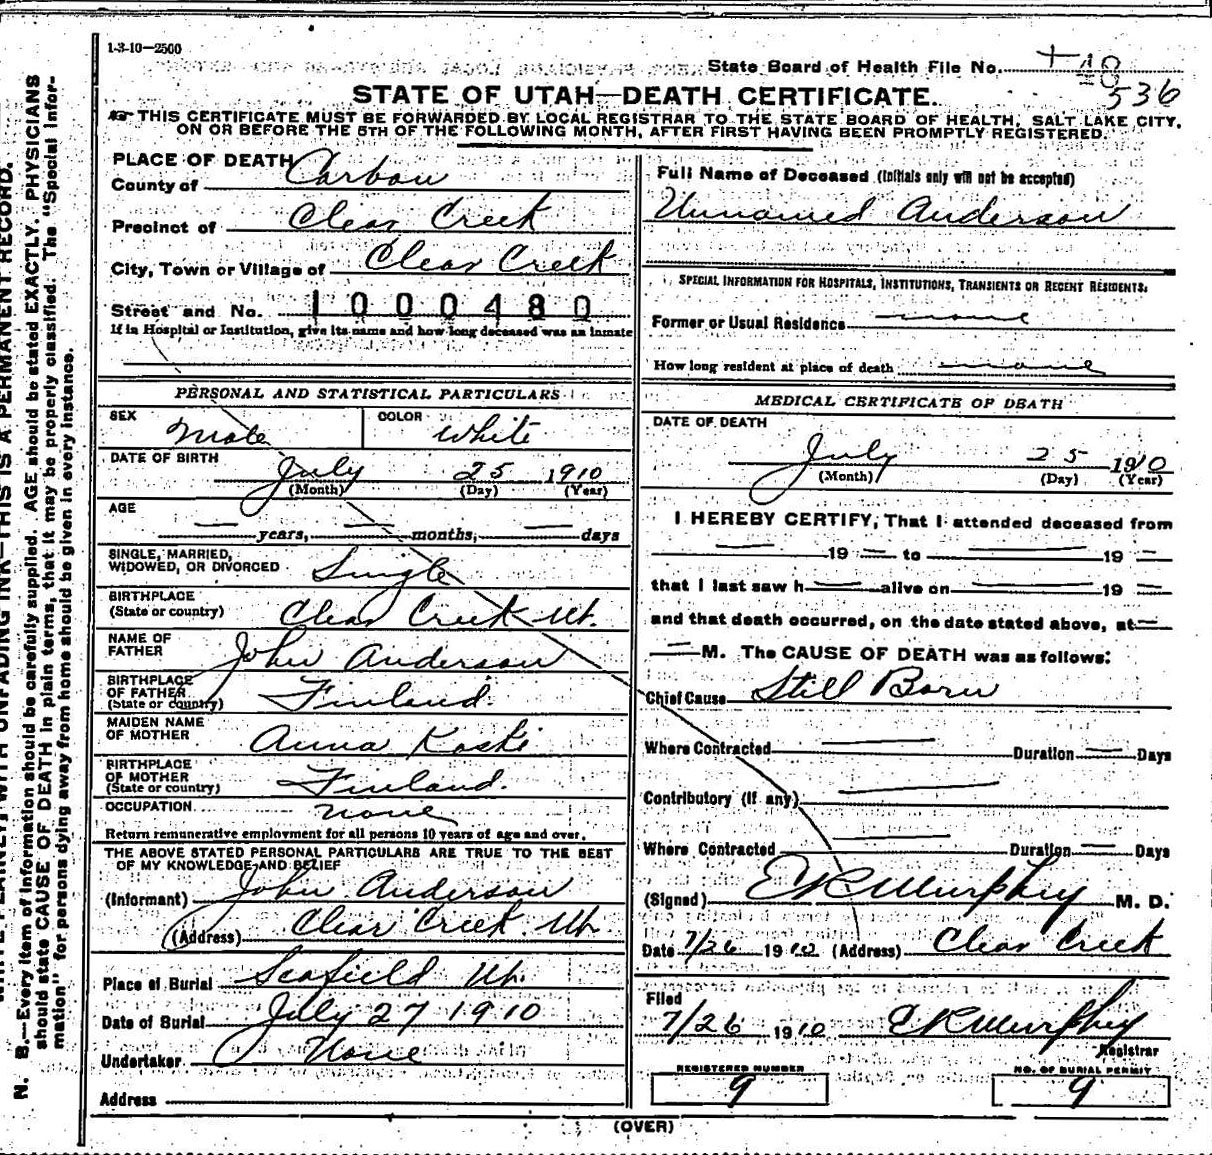 1-3-10—2500
State Board of Health File No. 18
536
STATE OF UTAH—DEATH CERTIFICATE.
THIS CERTIFICATE MUST BE FORWARDED BY LOCAL REGISTRAR TO THE STATE BOARD OF HEALTH, SALT LAKE CITY,
ON OR BEFORE THE 5TH OF THE FOLLOWING MONTH, AFTER FIRST HAVING BEEN PROMPTLY REGISTERED.
PLACE OF DEATH
County of Carbon
Precinct of Clear Creek
City, Town or Village of Clear Creek
Street and No. 1000480
If in Hospital or Institution, give its name and how long deceased was an inmate
PERSONAL AND STATISTICAL PARTICULARS
SEX Male COLOR White
DATE OF BIRTH July 25 1910
(Month) (Day) (Year)
AGE — years, — months, — days
SINGLE, MARRIED,
WIDOWED, OR DIVORCED Single
BIRTHPLACE
(State or country) Clear Creek Ut.
NAME OF
FATHER John Anderson
BIRTHPLACE
OF FATHER
(State or country) Finland.
MAIDEN NAME
OF MOTHER Anna Koski
BIRTHPLACE
OF MOTHER
(State or country) Finland.
OCCUPATION none
Return remunerative employment for all persons 10 years of age and over.
THE ABOVE STATED PERSONAL PARTICULARS ARE TRUE TO THE BEST
OF MY KNOWLEDGE AND BELIEF
(Informant) John Anderson
(Address) Clear Creek Ut.
Place of Burial Scofield Ut.
Date of Burial July 27 1910
Undertaker None
Address
Full Name of Deceased (Initials only will not be accepted)
Unnamed Anderson
SPECIAL INFORMATION FOR HOSPITALS, INSTITUTIONS, TRANSIENTS OR RECENT RESIDENTS.
Former or Usual Residence none
How long resident at place of death none
MEDICAL CERTIFICATE OF DEATH
DATE OF DEATH
July 25 1910
(Month) (Day) (Year)
I HEREBY CERTIFY, That I attended deceased from
— 19 — to — 19 —
that I last saw h — alive on — 19 —
and that death occurred, on the date stated above, at —
— M. The CAUSE OF DEATH was as follows:
Chief Cause Still Born
Where Contracted — Duration — Days
Contributory (if any) —
Where Contracted — Duration — Days
(Signed) E K Murphey M. D.
Date 7/26 1910 (Address) Clear Creek
Filed
7/26 1910 E K Murphey
Registrar
REGISTERED NUMBER
9
NO. OF BURIAL PERMIT
9
(OVER)
N. B.—Every item of information should be carefully supplied. AGE should be stated EXACTLY. PHYSICIANS
should state CAUSE OF DEATH in plain terms, that it may be properly classified. The "Special Infor-
mation" for persons dying away from home should be given in every instance.
WITH UNFADING INK—THIS IS A PERMANENT RECORD.